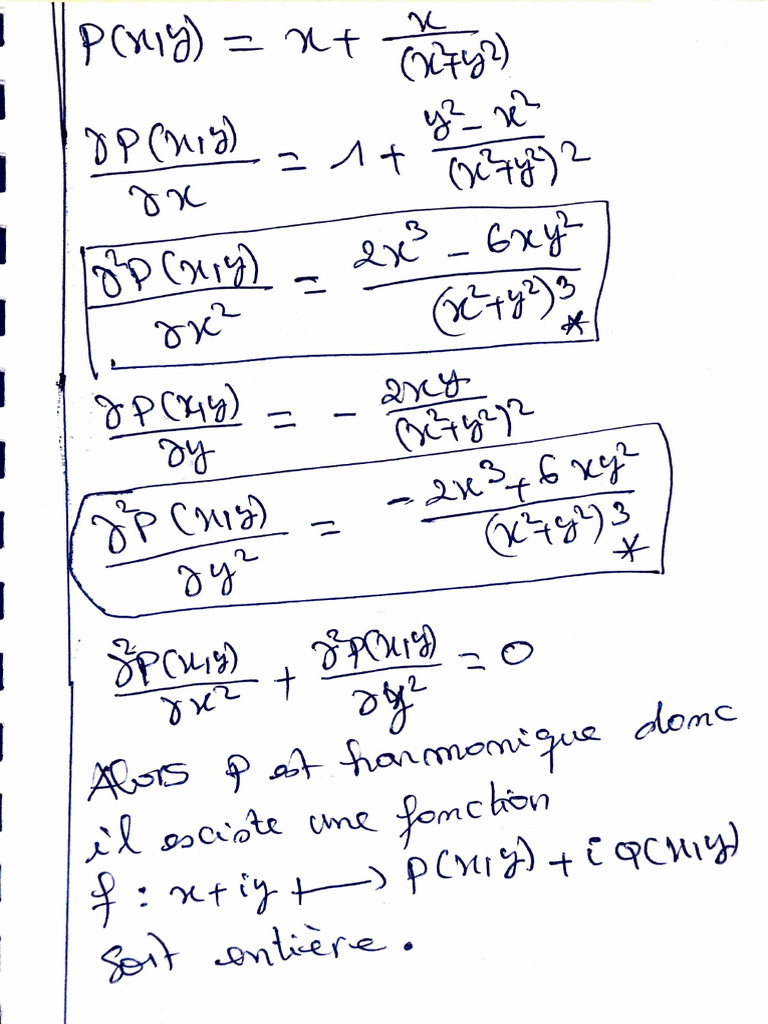 P(x,y) = x + x/(x²+y²)
∂P(x,y)/∂x = 1 + (y² - x²)/(x²+y²)²
∂²P(x,y)/∂x² = (2x³ - 6xy²)/(x²+y²)³ *
∂P(x,y)/∂y = - 2xy/(x²+y²)²
∂²P(x,y)/∂y² = (-2x³ + 6xy²)/(x²+y²)³ *
∂²P(x,y)/∂x² + ∂²P(x,y)/∂y² = 0
Alors P est harmonique donc
il existe une fonction
f : x + iy ⟼ P(x,y) + i Q(x,y)
soit entière.